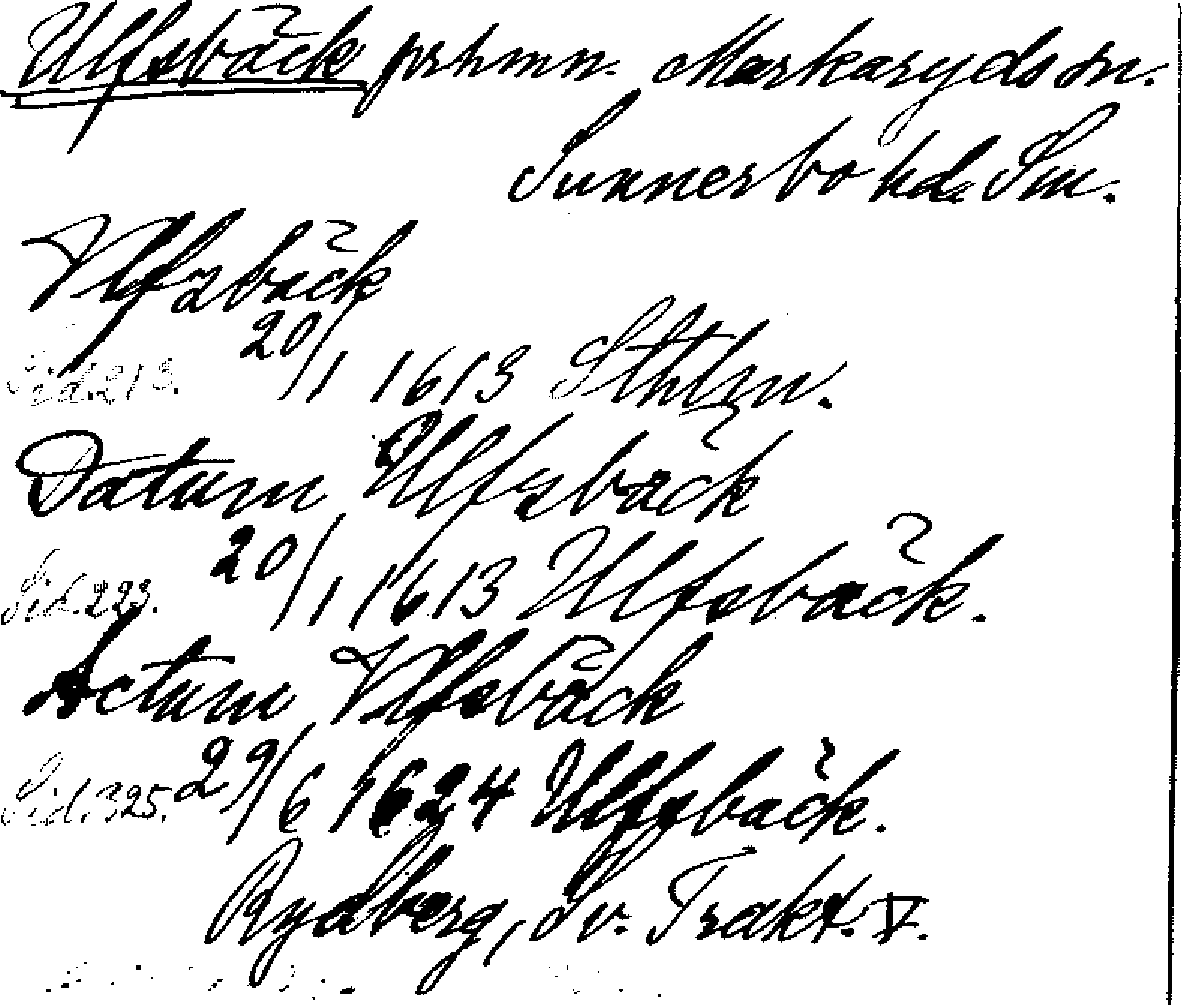 Ulfsbäck prhmn. Markaryds sn.
Sunnerbo hd. Sm.
Vlfzbäck
Sid. 213. 20/1 1613 Sthlm.
Datum Ulfsbäck
Sid. 223. 20/1 1613 Ulfsbäck.
Actum Vlfsbäck
Sid. 325. 29/6 1624 Ulfsbäck.
Rydberg, Sv. Trakt. V.